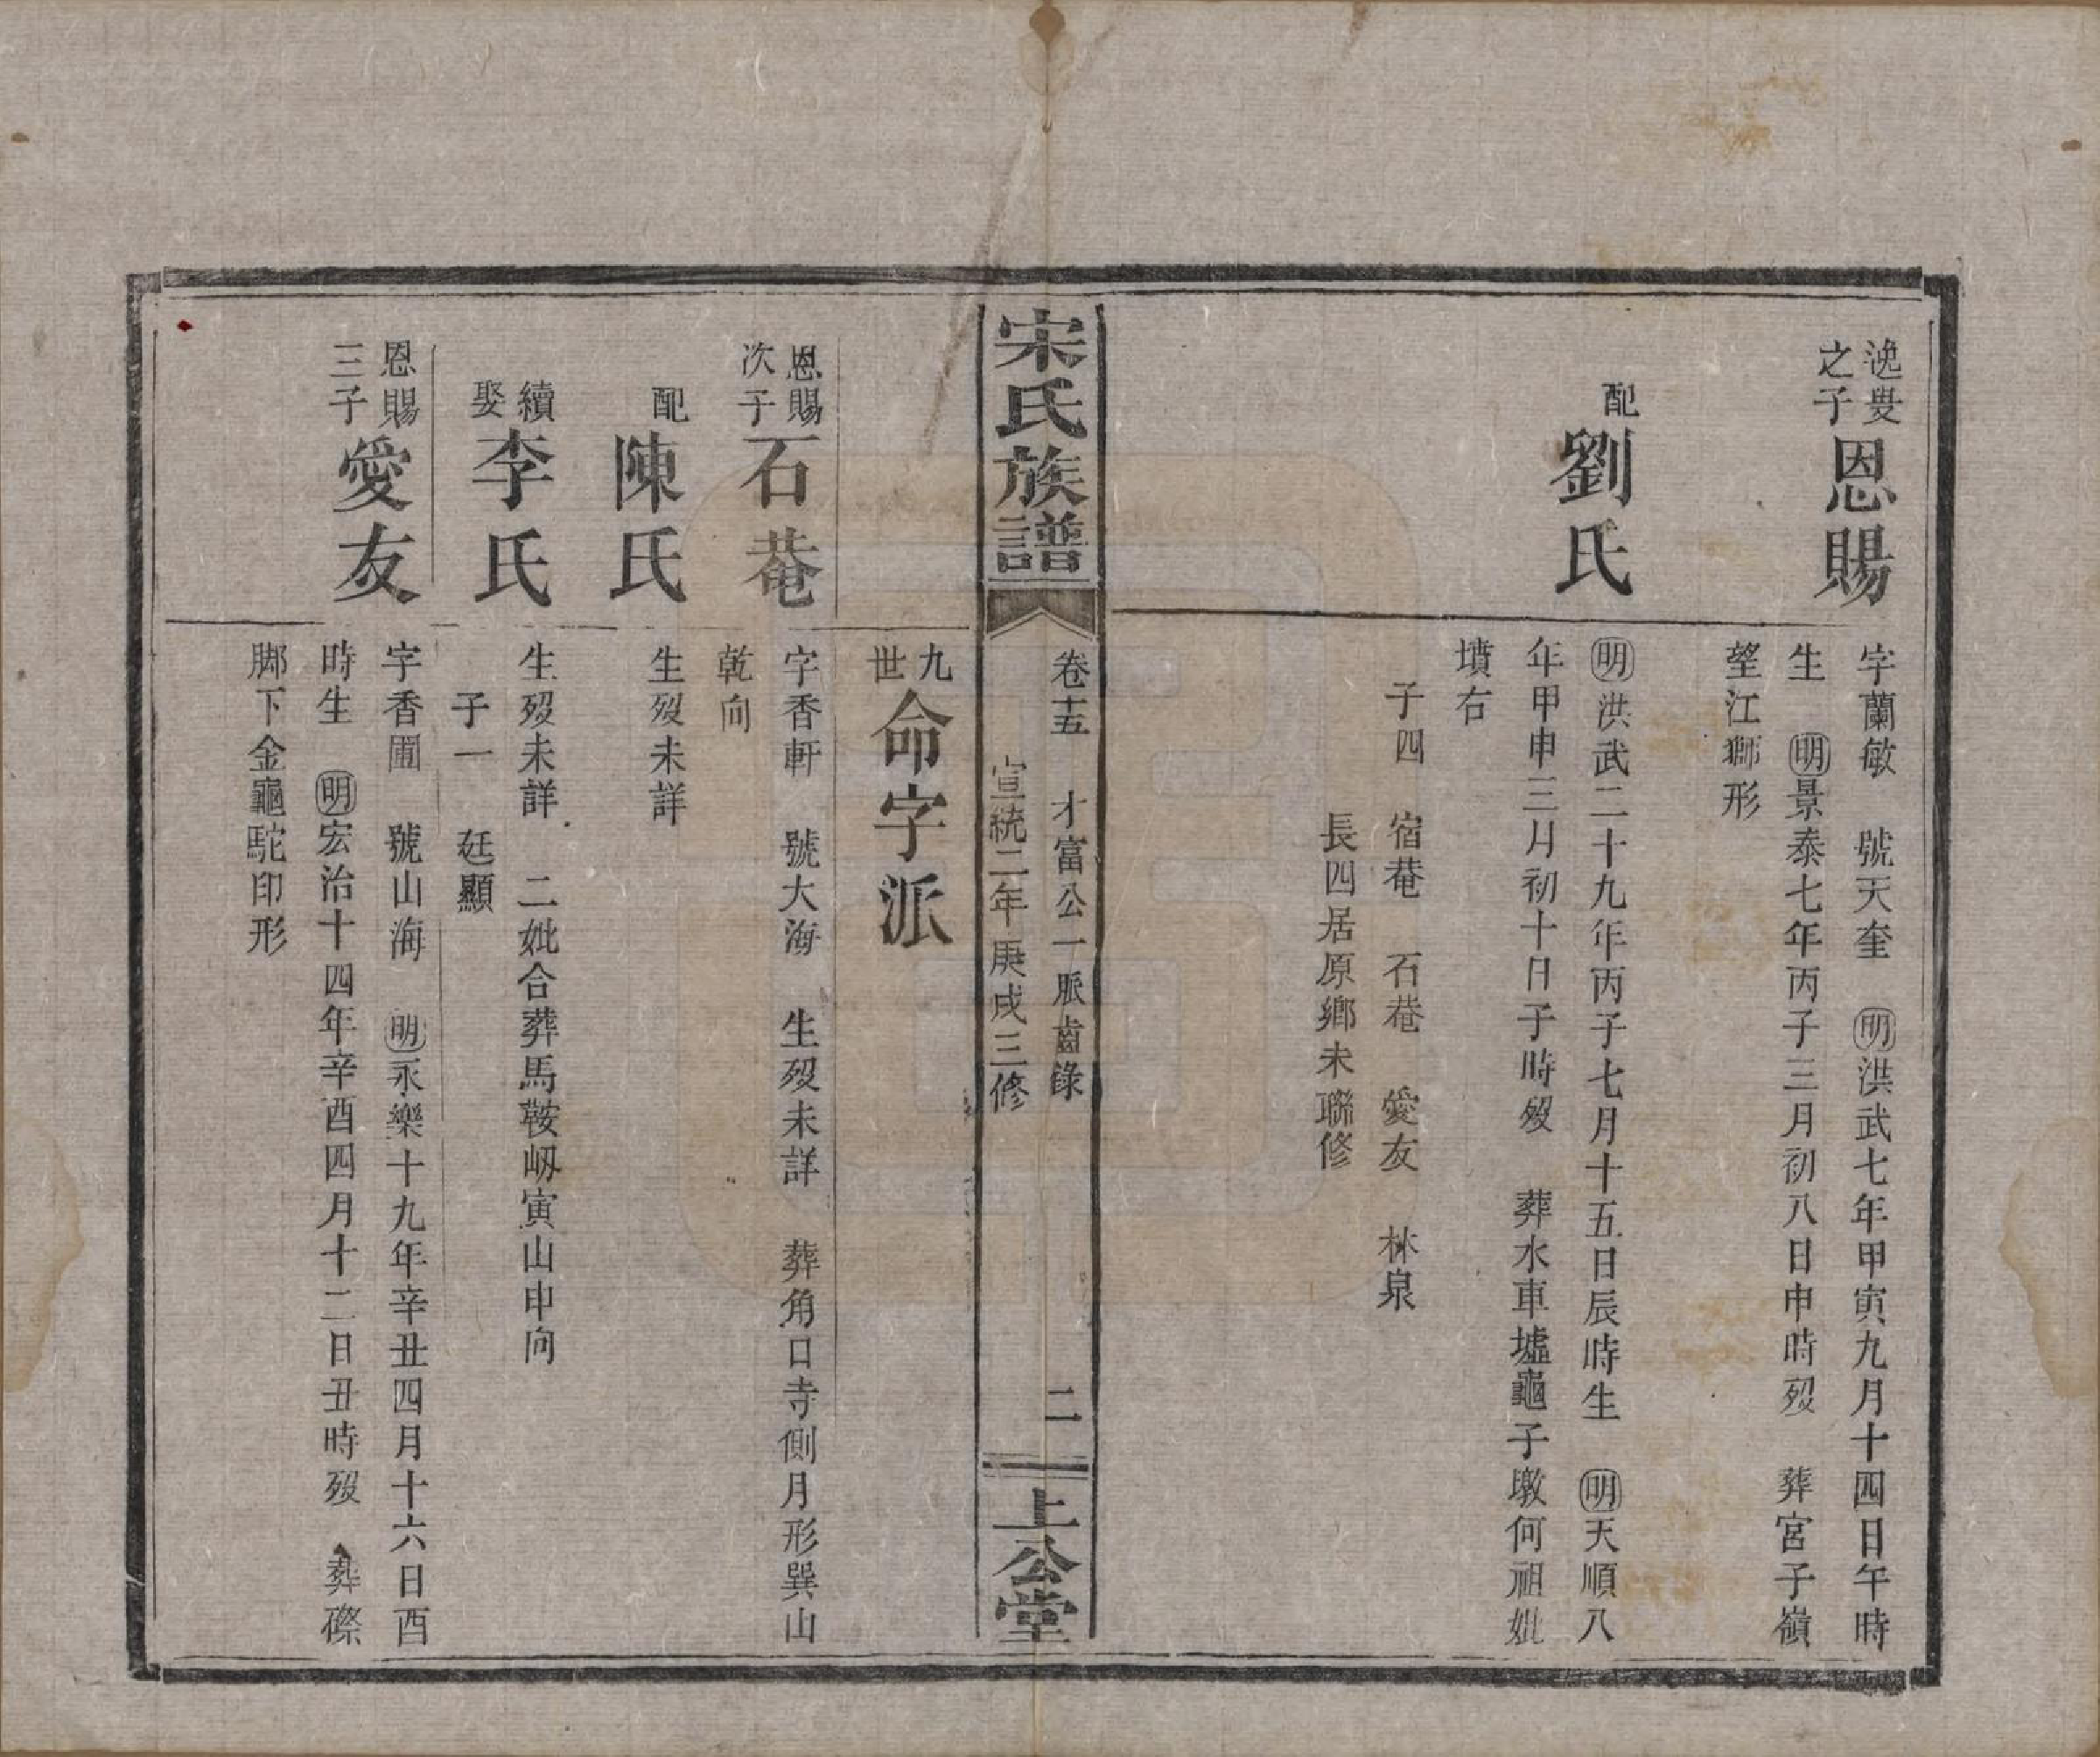 逸叟
之子
恩賜
字蘭敏　號天奎　明洪武七年甲寅九月十四日午時
生　明景泰七年丙子三月初八日申時歿　葬宮子嶺
望江獅形
配
劉氏
明洪武二十九年丙子七月十五日辰時生　明天順八
年甲申三月初十日子時歿　葬水車墟龜子墩何祖妣
墳右
子四　宿菴　石菴　愛友　林泉
長四居原鄉未聯修
宋氏族譜
卷十五　才富公一脈齒錄
宣統二年庚戌三修
二
上公堂
九
世
命字派
恩賜
次子
石菴
字香軒　號大海　生歿未詳　葬角口寺側月形巽山
乾向
配
陳氏
生歿未詳
續
娶
李氏
生歿未詳　二妣合葬馬鞍㘭寅山申向
子一　廷顯
恩賜
三子
愛友
字香圃　號山海　明永樂十九年辛丑四月十六日酉
時生　明宏治十四年辛酉四月十二日丑時歿　葬磜
腳下金龜駝印形